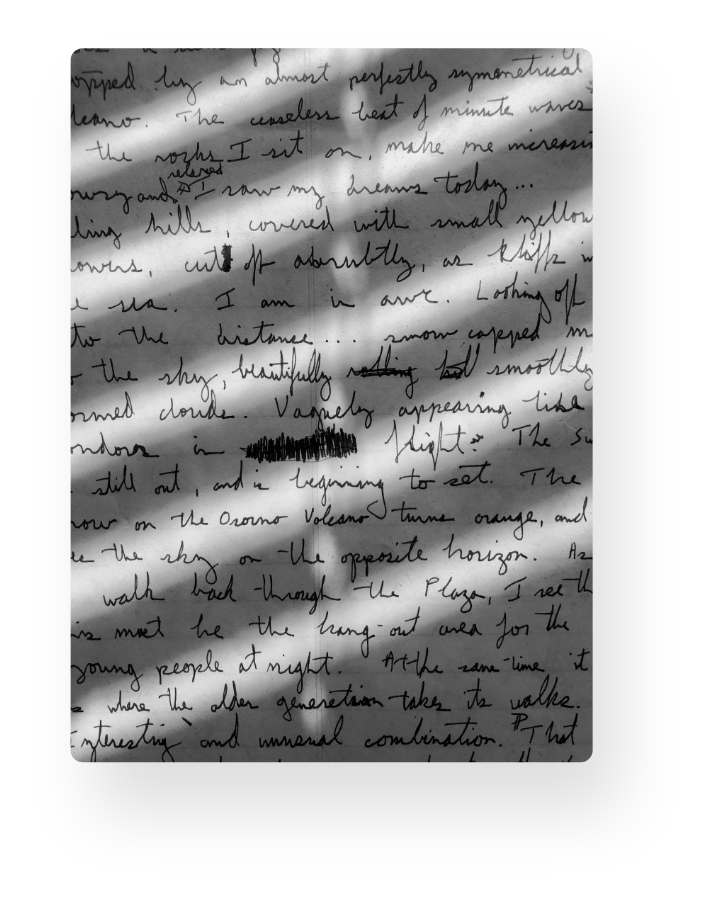 topped by an almost perfectly symmetrical
volcano. The ceaseless beat of minute waves
the rocks I sit on, make me increasin
relaxed
owsy and I saw my dreams today...
lling hills, covered with small yellow
owers, cut off abruptly, as kliffs in
e sea. I am in awe. Looking off
to the distance... snow capped m
o the sky, beautifully smoothly
ormed clouds. Vaguely appearing like
ondors in flight. The Su
still out, and is beginning to set. The
now on the Osorno Volcano turns orange, and
ee the sky on the opposite horizon. As
walk back through the Plaza, I see th
is must be the hang-out area for the
young people at night. At the same time it
s where the older generation takes its walks.
Interesting and unusual combination. That